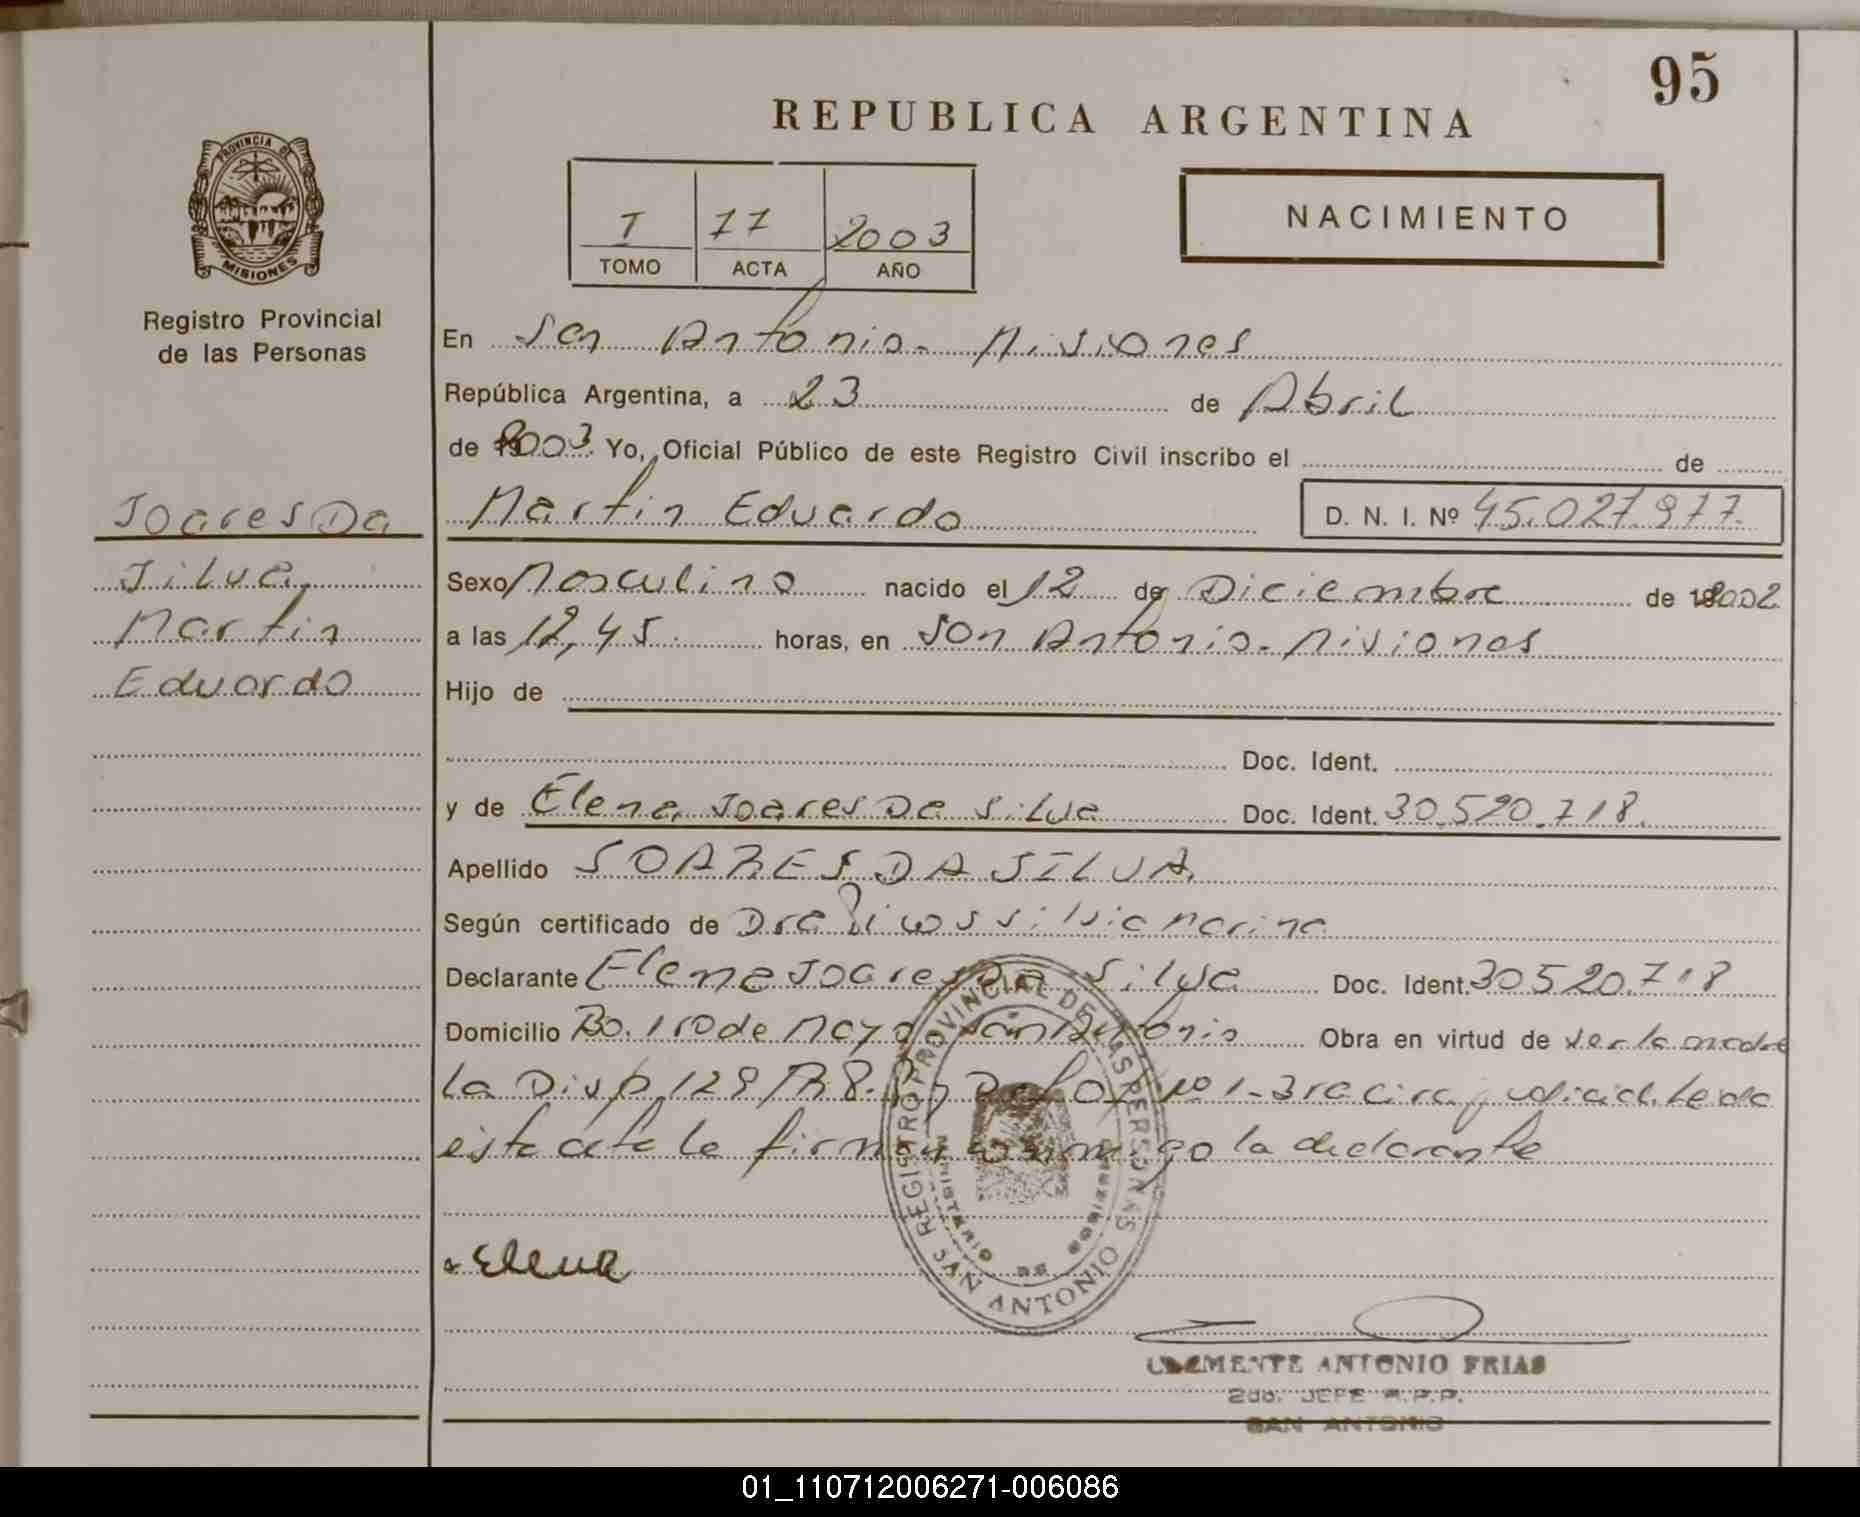 95
REPUBLICA ARGENTINA
PROVINCIA DE
MISIONES
Registro Provincial
de las Personas
I 77 2003
TOMO ACTA AÑO
NACIMIENTO
En San Antonio - Misiones
República Argentina, a 23 de Abril
de 2003 Yo, Oficial Público de este Registro Civil inscribo el de
Martin Eduardo D. N. I. Nº 45.027.977.
Soares Da
Silva,
Martin
Eduardo
Sexo Masculino nacido el 12 de Diciembre de 2002
a las 12,45. horas, en San Antonio - Misiones
Hijo de
Doc. Ident.
y de Elena Soares Da Silva Doc. Ident. 30.520.718.
Apellido SOARES DA SILVA,
Según certificado de Dra Silvia Marina
Declarante Elena Soares Da Silva Doc. Ident. 30520.718
Domicilio Bo. 1ro de Mayo San Antonio Obra en virtud de ser la madre
La Disp. 128 judicial. Leida
esta acta la firma conmigo la declarante
Elena
REGISTRO PROVINCIAL DE LAS PERSONAS
MINISTERIO DE
SAN ANTONIO
CLEMENTE ANTONIO FRIAS
2do. JEFE R.P.P.
SAN ANTONIO
01_110712006271-006086